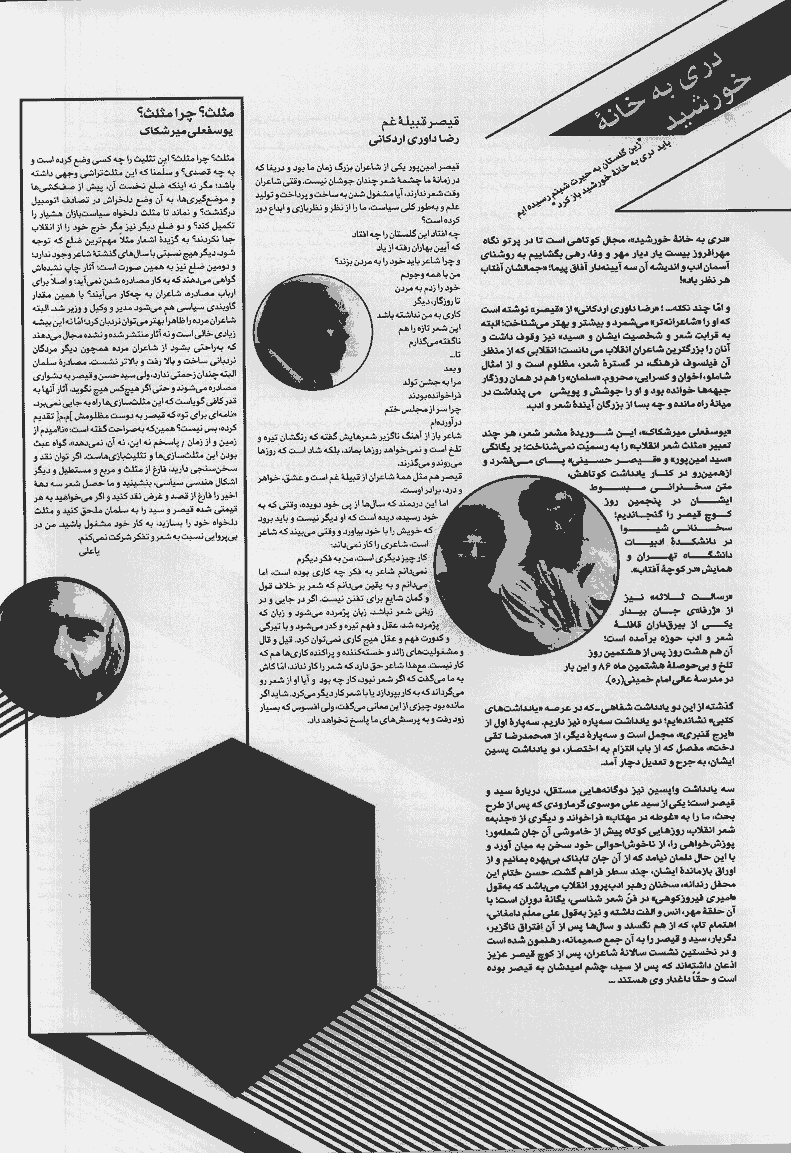 دری به خانهٔ
خورشید
"زین گلستان به حیرت شبنم رسیده ایم
باید دری به خانهٔ خورشید باز کرد"
«دری به خانهٔ خورشید»، مجال کوتاهی است تا در پرتو نگاه
مهرافروز بیست یار دیار مهر و وفا، رهی بگشاییم به روشنای
آسمان ادب و اندیشه آن سه آیینه‌دار آفاق پیما؛ «جمالشان آفتاب
هر نظر باد»!
و امّا چند نکته... : «رضا داوری اردکانی» از «قیصر» نوشته است
که او را «شاعرانه‌تر» می‌شمرد و بیشتر و بهتر می‌شناخت؛ البته
به قرابت شعر و شخصیت ایشان و «سید» نیز وقوف داشت و
آنان را بزرگترین شاعران انقلاب می دانست؛ انقلابی که از منظر
آن فیلسوف فرهنگ، در گسترهٔ شعر، مظلوم است و از امثال
شاملو، اخوان و کسرایی، محروم. «سلمان» را هم در همان روزگار
جبهه‌ها خوانده بود و او را جوشش و پویشی می پنداشت در
میانهٔ راه مانده و چه بسا از بزرگان آیندهٔ شعر و ادب.
«یوسفعلی میرشکاک»، این شوریدهٔ مشعر شعر، هر چند
تعبیر «مثلث شعر انقلاب» را به رسمیّت نمی‌شناخت؛ بر یگانگی
«سید امین‌پور» و «قیصر حسینی» پای می‌فشرد و
ازهمین‌رو در کنار یادداشت کوتاهش،
متن سخنرانی مبسوط
ایشان در پنجمین روز
کوچ قیصر را گنجاندیم؛
سخنانی شیوا
در دانشکدهٔ ادبیات
دانشگاه تهران و
همایش «در کوچهٔ آفتاب».
«رسالت ثلاثه» نیز
از «ژرفه‌ی جان بیدار
یکی از بیرق‌داران قافلهٔ
شعر و ادب حوزه برآمده است؛
آن هم هشت روز پس از هشتمین روز
تلخ و بی‌حوصلهٔ هشتمین ماه ۸۶ و این بار
در مدرسهٔ عالی امام خمینی(ره).
گذشته از این دو یادداشت شفاهی ــ که در عرصه «یادداشت‌های
کتبی» نشانده‌ایم؛ دو یادداشت سه‌پاره نیز داریم. سه‌پارهٔ اول از
«ایرج قنبری»، مجمل است و سه‌پارهٔ دیگر، از «محمدرضا تقی
دخت»، مفصل که از باب التزام به اختصار، دو یادداشت پسین
ایشان، به جرح و تعدیل دچار آمد.
سه یادداشت واپسین نیز دوگانه‌هایی مستقل، دربارهٔ سید و
قیصر است؛ یکی از سید علی موسوی گرمارودی که پس از طرح
بحث، ما را به «غوطه در مهتاب» فراخواند و دیگری از «جذبه»
شعر انقلاب، روزهایی کوتاه پیش از خاموشی آن جان شعله‌ور؛
پوزش‌خواهی را، از ناخوش‌احوالی خود سخن به میان آورد و
با این حال دلمان نیامد که از آن جان تابناک بی‌بهره بمانیم و از
اوراق بازماندهٔ ایشان، چند سطر فراهم گشت. حسن ختام این
محفل رندانه، سخنان رهبر ادب‌پرور انقلاب می‌باشد که به‌قول
«امیری فیروزکوهی» در فنّ شعر شناسی، یگانهٔ دوران است؛ با
آن حلقهٔ مهر، انس و الفت داشته و نیز به‌قول علی معلّم دامغانی،
اهتمام تام، که از هم نگسلد و سال‌ها پس از آن افتراق ناگزیر،
دگربار، سید و قیصر را به آن جمع صمیمانه، رهنمون شده است
و در نخستین نشست سالانهٔ شاعران، پس از کوچ قیصر عزیز
اذعان داشته‌اند که پس از سید، چشم امیدشان به قیصر بوده
است و حقّاً داغدار وی هستند ...
قیصر قبیلهٔ غم
رضا داوری اردکانی
قیصر امین‌پور یکی از شاعران بزرگ زمان ما بود و دریغا که
در زمانهٔ ما چشمهٔ شعر چندان جوشان نیست. وقتی شاعران
وقت شعر ندارند، آیا مشغول شدن به ساخت و پرداخت و تولید
علم و به‌طور کلی سیاست، ما را از نظر و نظربازی و ابداع دور
کرده است؟
چه افتاد این گلستان را چه افتاد
که آیین بهاران رفته از یاد
و چرا شاعر باید خود را به مردن بزند؟
من با همه وجودم
خود را زدم به مردن
تا روزگار، دیگر
کاری به من نداشته باشد
این شعر تازه را هم
ناگفته می‌گذارم
تا...
و بعد
مرا به جشن تولد
فراخوانده بودند
چرا سر از مجلس ختم
درآورده‌ام
شاعر باز از آهنگ ناگزیر شعرهایش گفته که رنگشان تیره و
تلخ است و نمی‌خواهد روزها بماند، بلکه شاد است که روزها
می‌روند و می‌گذرند.
قیصر هم مثل همهٔ شاعران از قبیلهٔ غم است و عشق، خواهر
و درد، برادر اوست.
اما این دردمند که سال‌ها از پی خود دویده، وقتی که به
خود رسیده، دیده است که او دیگر نیست و باید برود
که خویش را با خود بیاورد و وقتی می‌بیند که شاعر
است، شاعری را کار نمی‌داند:
کار چیز دیگری است، من به فکر دیگرم
نمی‌دانم شاعر به فکر چه کاری بوده است، اما
می‌دانم و به یقین می‌دانم که شعر بر خلاف قول
و گمان شایع برای تفنن نیست. اگر در جایی و در
زبانی شعر نباشد، زبان پژمرده می‌شود و زبان که
پژمرده شد، عقل و فهم تیره و کدر می‌شود و با تیرگی
و کدورت فهم و عقل هیچ کاری نمی‌توان کرد. قیل و قال
و مشغولیت‌های زائد و خسته‌کننده و پراکنده کاری‌ها هم که
کار نیست. مع‌هذا شاعر حق دارد که شعر را کار نداند، امّا کاش
به ما می‌گفت که اگر شعر نبود، کار چه بود و آیا او از شعر رو
می‌گرداند که به کار بپردازد یا با شعر کار دیگر می‌کرد. شاید اگر
مانده بود چیزی از این معانی می‌گفت، ولی افسوس که بسیار
زود رفت و به پرسش‌های ما پاسخ نخواهد داد.
مثلث؟ چرا مثلث؟
یوسفعلی میرشکاک
مثلث؟ چرا مثلث؟ این تثلیث را چه کسی وضع کرده است و
به چه قصدی؟ و سلّمنا که این مثلث‌تراشی وجهی داشته
باشد؛ مگر نه اینکه ضلع نخست آن، پیش از صف‌کشی‌ها
و موضع‌گیری‌ها، به آن وضع دلخراش در تصادف اتومبیل
درگذشت؟ و نماند تا مثلث دلخواه سیاست‌بازان هشیار را
تکمیل کند؟ و دو ضلع دیگر نیز مگر خرج خود را از انقلاب
جدا نکردند؟ به گزیدهٔ اشعار مثلا مهم‌ترین ضلع که توجه
شود، دیگر هیچ نسبتی با سال‌های گذشتهٔ شاعر وجود ندارد؛
و دومین ضلع نیز به همین صورت است؛ آثار چاپ نشده‌اش
گواهی می‌دهند که به کار مصادره شدن نمی‌آید؛ و اصلاً برای
ارباب مصادره، شاعران به چه‌کار می‌آیند؟ با همین مقدار
گاوبندی سیاسی هم می‌شود مدیر و وکیل و وزیر شد. البته
شاعران مرده را ظاهراً بهتر می‌توان نردبان کرد؛ امّا نه این بیشه
زیادی خالی است و نه آثار منتشر شده و نشده مجال می‌دهند
که به‌راحتی بشود از شاعران مرده همچون دیگر مردگان
نردبانی ساخت و بالا رفت و بالاتر نشست. مصادرهٔ سلمان
البته چندان زحمتی ندارد، ولی سید حسن و قیصر به دشواری
مصادره می‌شوند و حتی اگر هیچ‌کس هیچ نگوید، آثار آنها به
قدر کافی گویاست که این مثلث‌سازی‌ها راه به جایی نمی‌برد.
«نامه‌ای برای تو» که قیصر به دوست مظلومش [م.م] تقدیم
کرده، بس نیست؟ همین‌که به‌صراحت گفته است: «ناامیدم از
زمین و از زمان / پاسخم نه این، نه آن، نمی‌دهد»، گواه عبث
بودن این مثلث‌سازی‌ها و تثلیث‌بازی‌هاست. اگر توان نقد و
سخن‌سنجی دارید، فارغ از مثلث و مربع و مستطیل و دیگر
اشکال هندسی سیاسی، بنشینید و ما حصل شعر سه دههٔ
اخیر را فارغ از قصد و غرض نقد کنید و اگر می‌خواهید به هر
قیمتی شده قیصر و سید را به سلمان ملحق کنید و مثلث
دلخواه خود را بسازید، به کار خود مشغول باشید. من در
بی‌پروایی نسبت به شعر و تفکر شرکت نمی‌کنم.
یاعلی